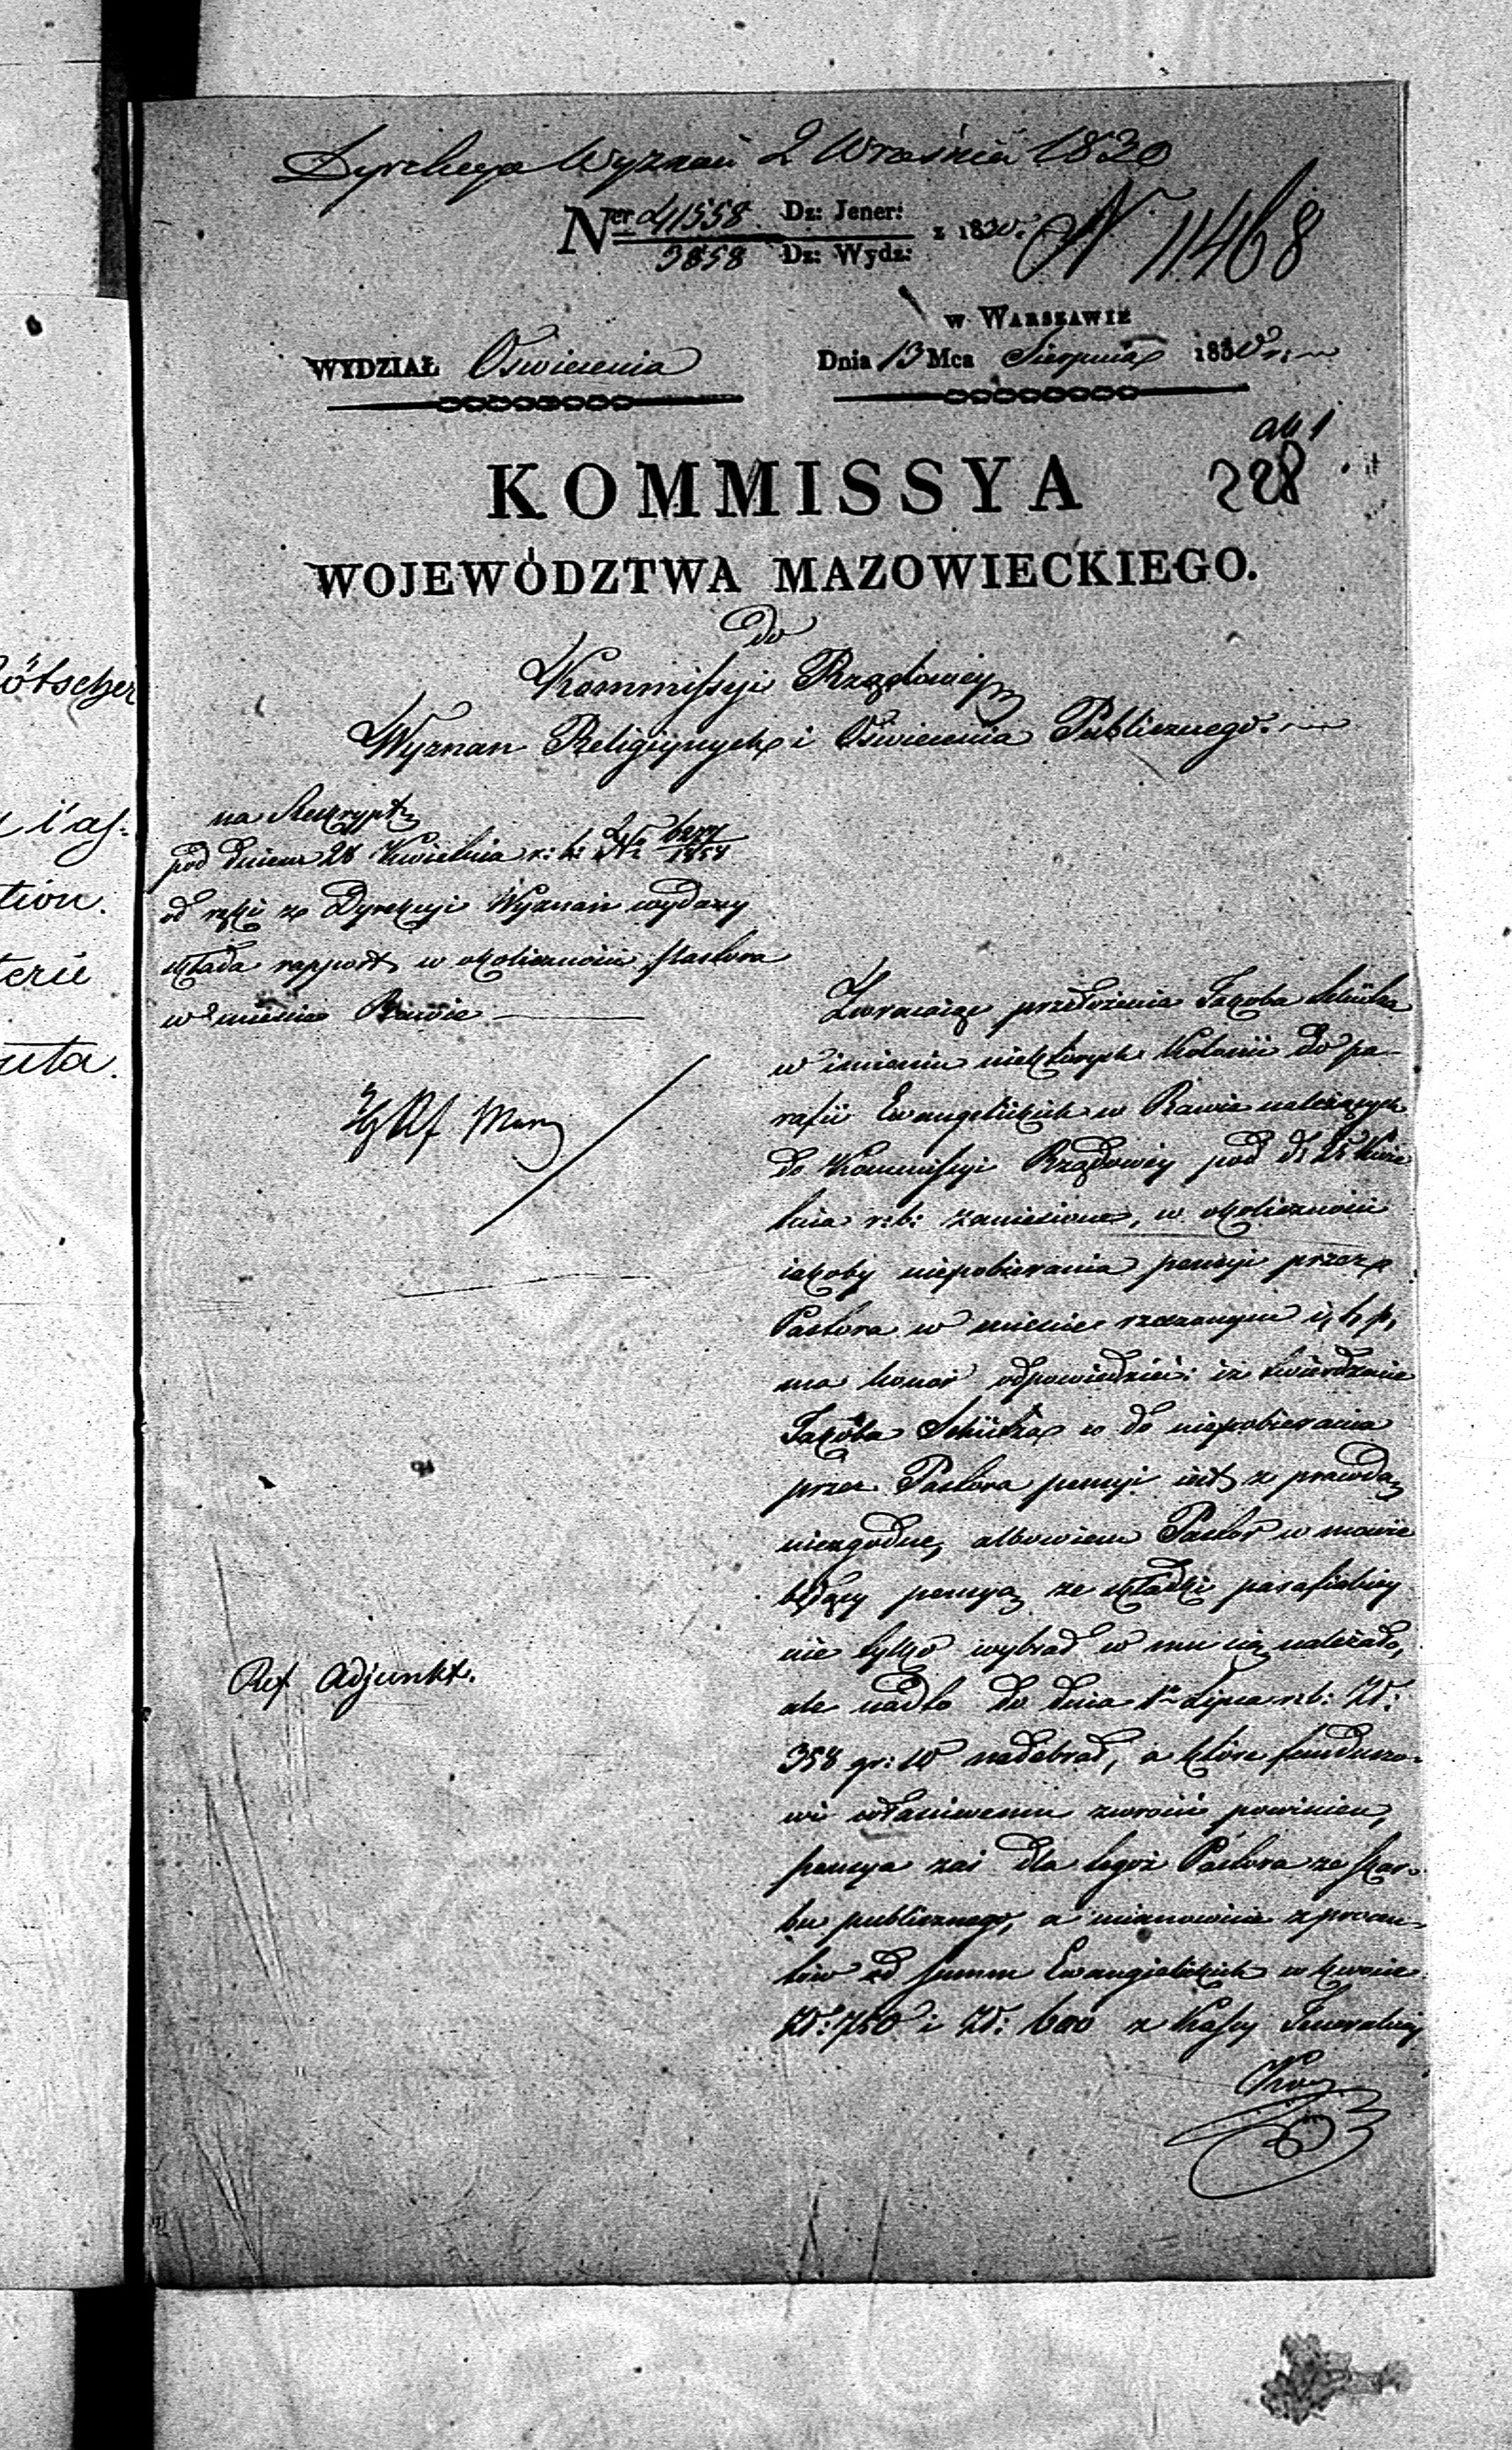 Dyrekcya Wyznań 2 Września 1830
Ner 41558 Dz: Jener: z 1830. N 11468
3858 Dz: Wydz:
w Warszawie
WYDZIAŁ Oświecenia Dnia 13 Mca Sierpnia 1830 r.
ad 1
228
KOMMISSYA
WOJEWÓDZTWA MAZOWIECKIEGO.
do
Kommissyi Rządowey
Wyznan Religiynych i Oswiecenia Publicznego.
na Reskrypt
pod dniem 28 Kwietnia r: b: N
od ręki z Dyrekcyi Wyznań wydany
składa rapport w okoliczności Pastora
w mieście Rawie
Ref Adjunkt.
Zwracaiąc przełożenie Jakoba Schütza
w imieniu niektórych Kolonii do pa-
rafii Ewangelickich w Rawie należących
do Kommissyi Rządowey pod d. 28 Kwie
tnia r: b: zaniesione, w okoliczności
iakoby niepobierania pensyi przez
Pastora w mieście rzeczonym i, t, p,
ma honor odpowiedzieć: iż twierdzenie
Jakóba Schütza co do niepobierania
przez Pastora pensyi iest z prawdą
niezgodne, albowiem Pastor w mowie
będący pensyą ze składki parafialney
nie tylko wybrał co mu się należało,
ale nadto do dnia 1o Lipca r: b: Zł:
358 gr: 10 nadebrał, a które fundusżo-
wi właściwemu zwrócić powinien,
pensya zaś dla tegoż Pastora ze skar-
bu publicznego, a mianowicie z procen-
tów od summ Ewangielickich w kwocie
Zł: 750 i Zł: 600 z Kassy Jeneralney